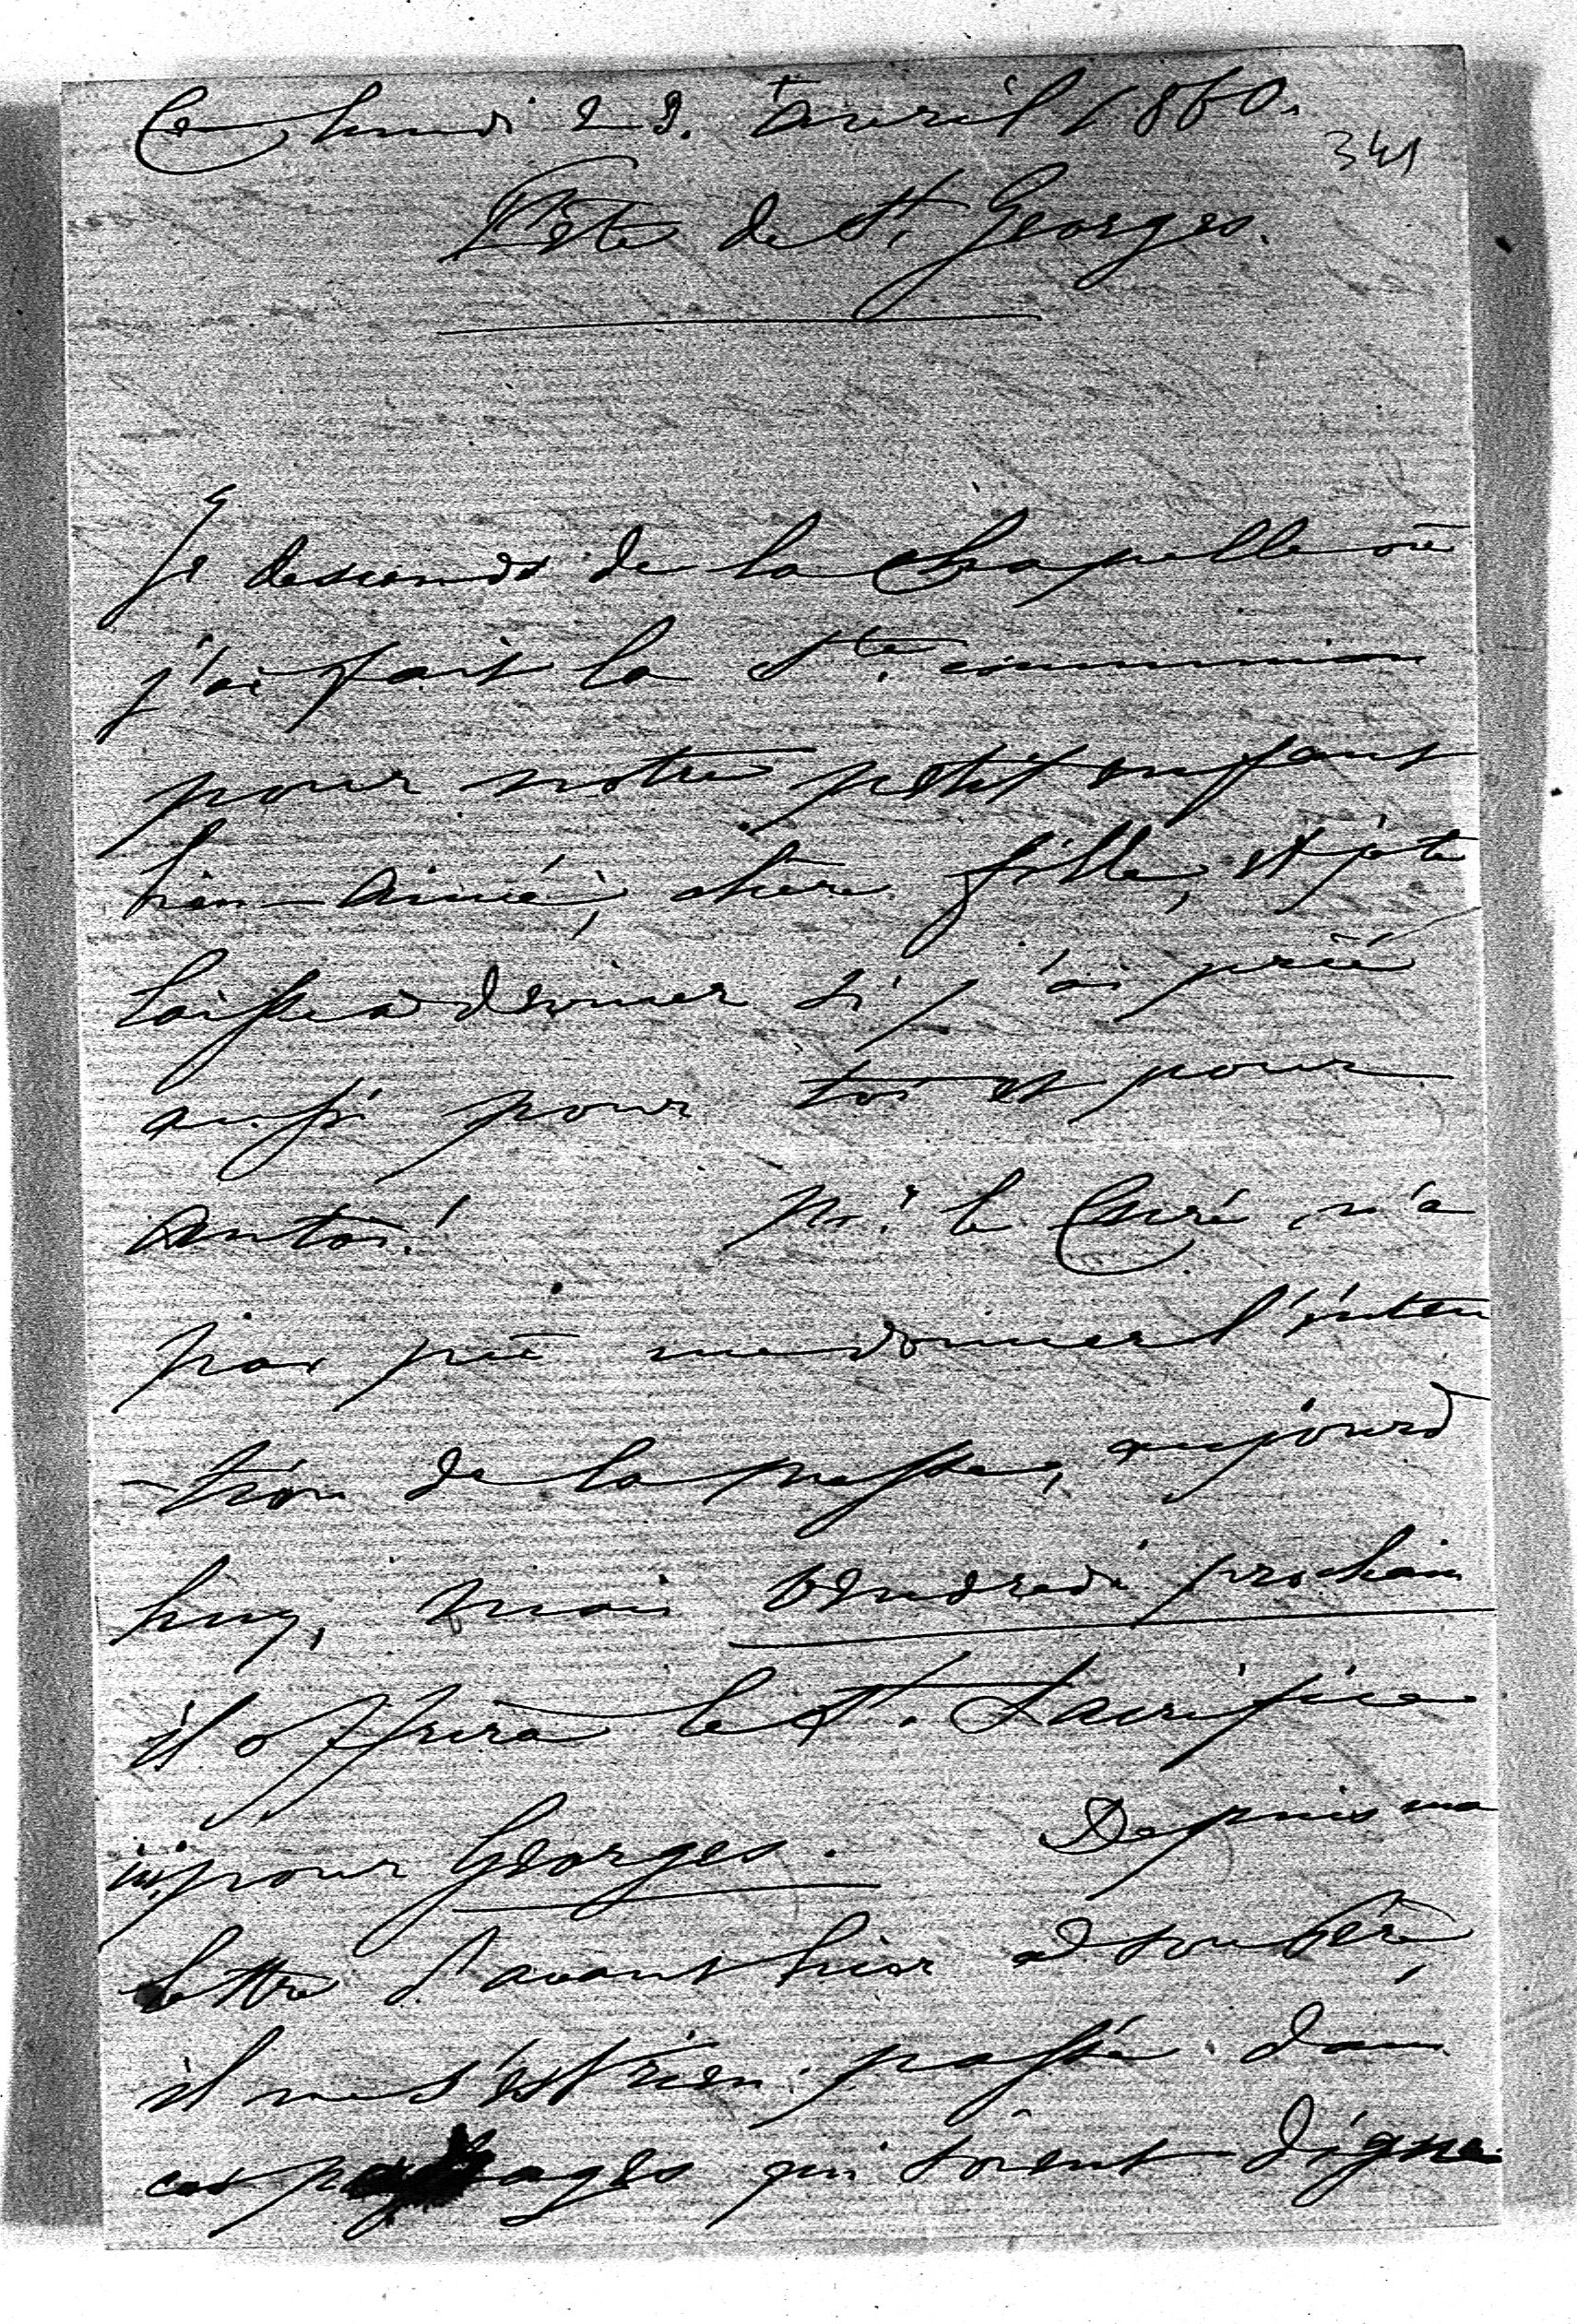 Ce lundi 23. avril 1860.
341
Fête de St. Georges.
Je descends de la chapelle où
j'ai fait la Ste. communion
pour notre petit enfant
bien-aimé, chère fille, et je te
laisse à deviner si j'ai prié
aussi pour toi et pour
Antoi.! Mr. le Curé n'a
pas pu me donner l'inten
-tion de la messe, aujourd
huy, mais vendredi prochain
il offrira le St. Sacrifice
pour Georges. Depuis ma
lettre d'avant hier à ton Père,
il ne s'est rien passé dans
ces qui soient dignes